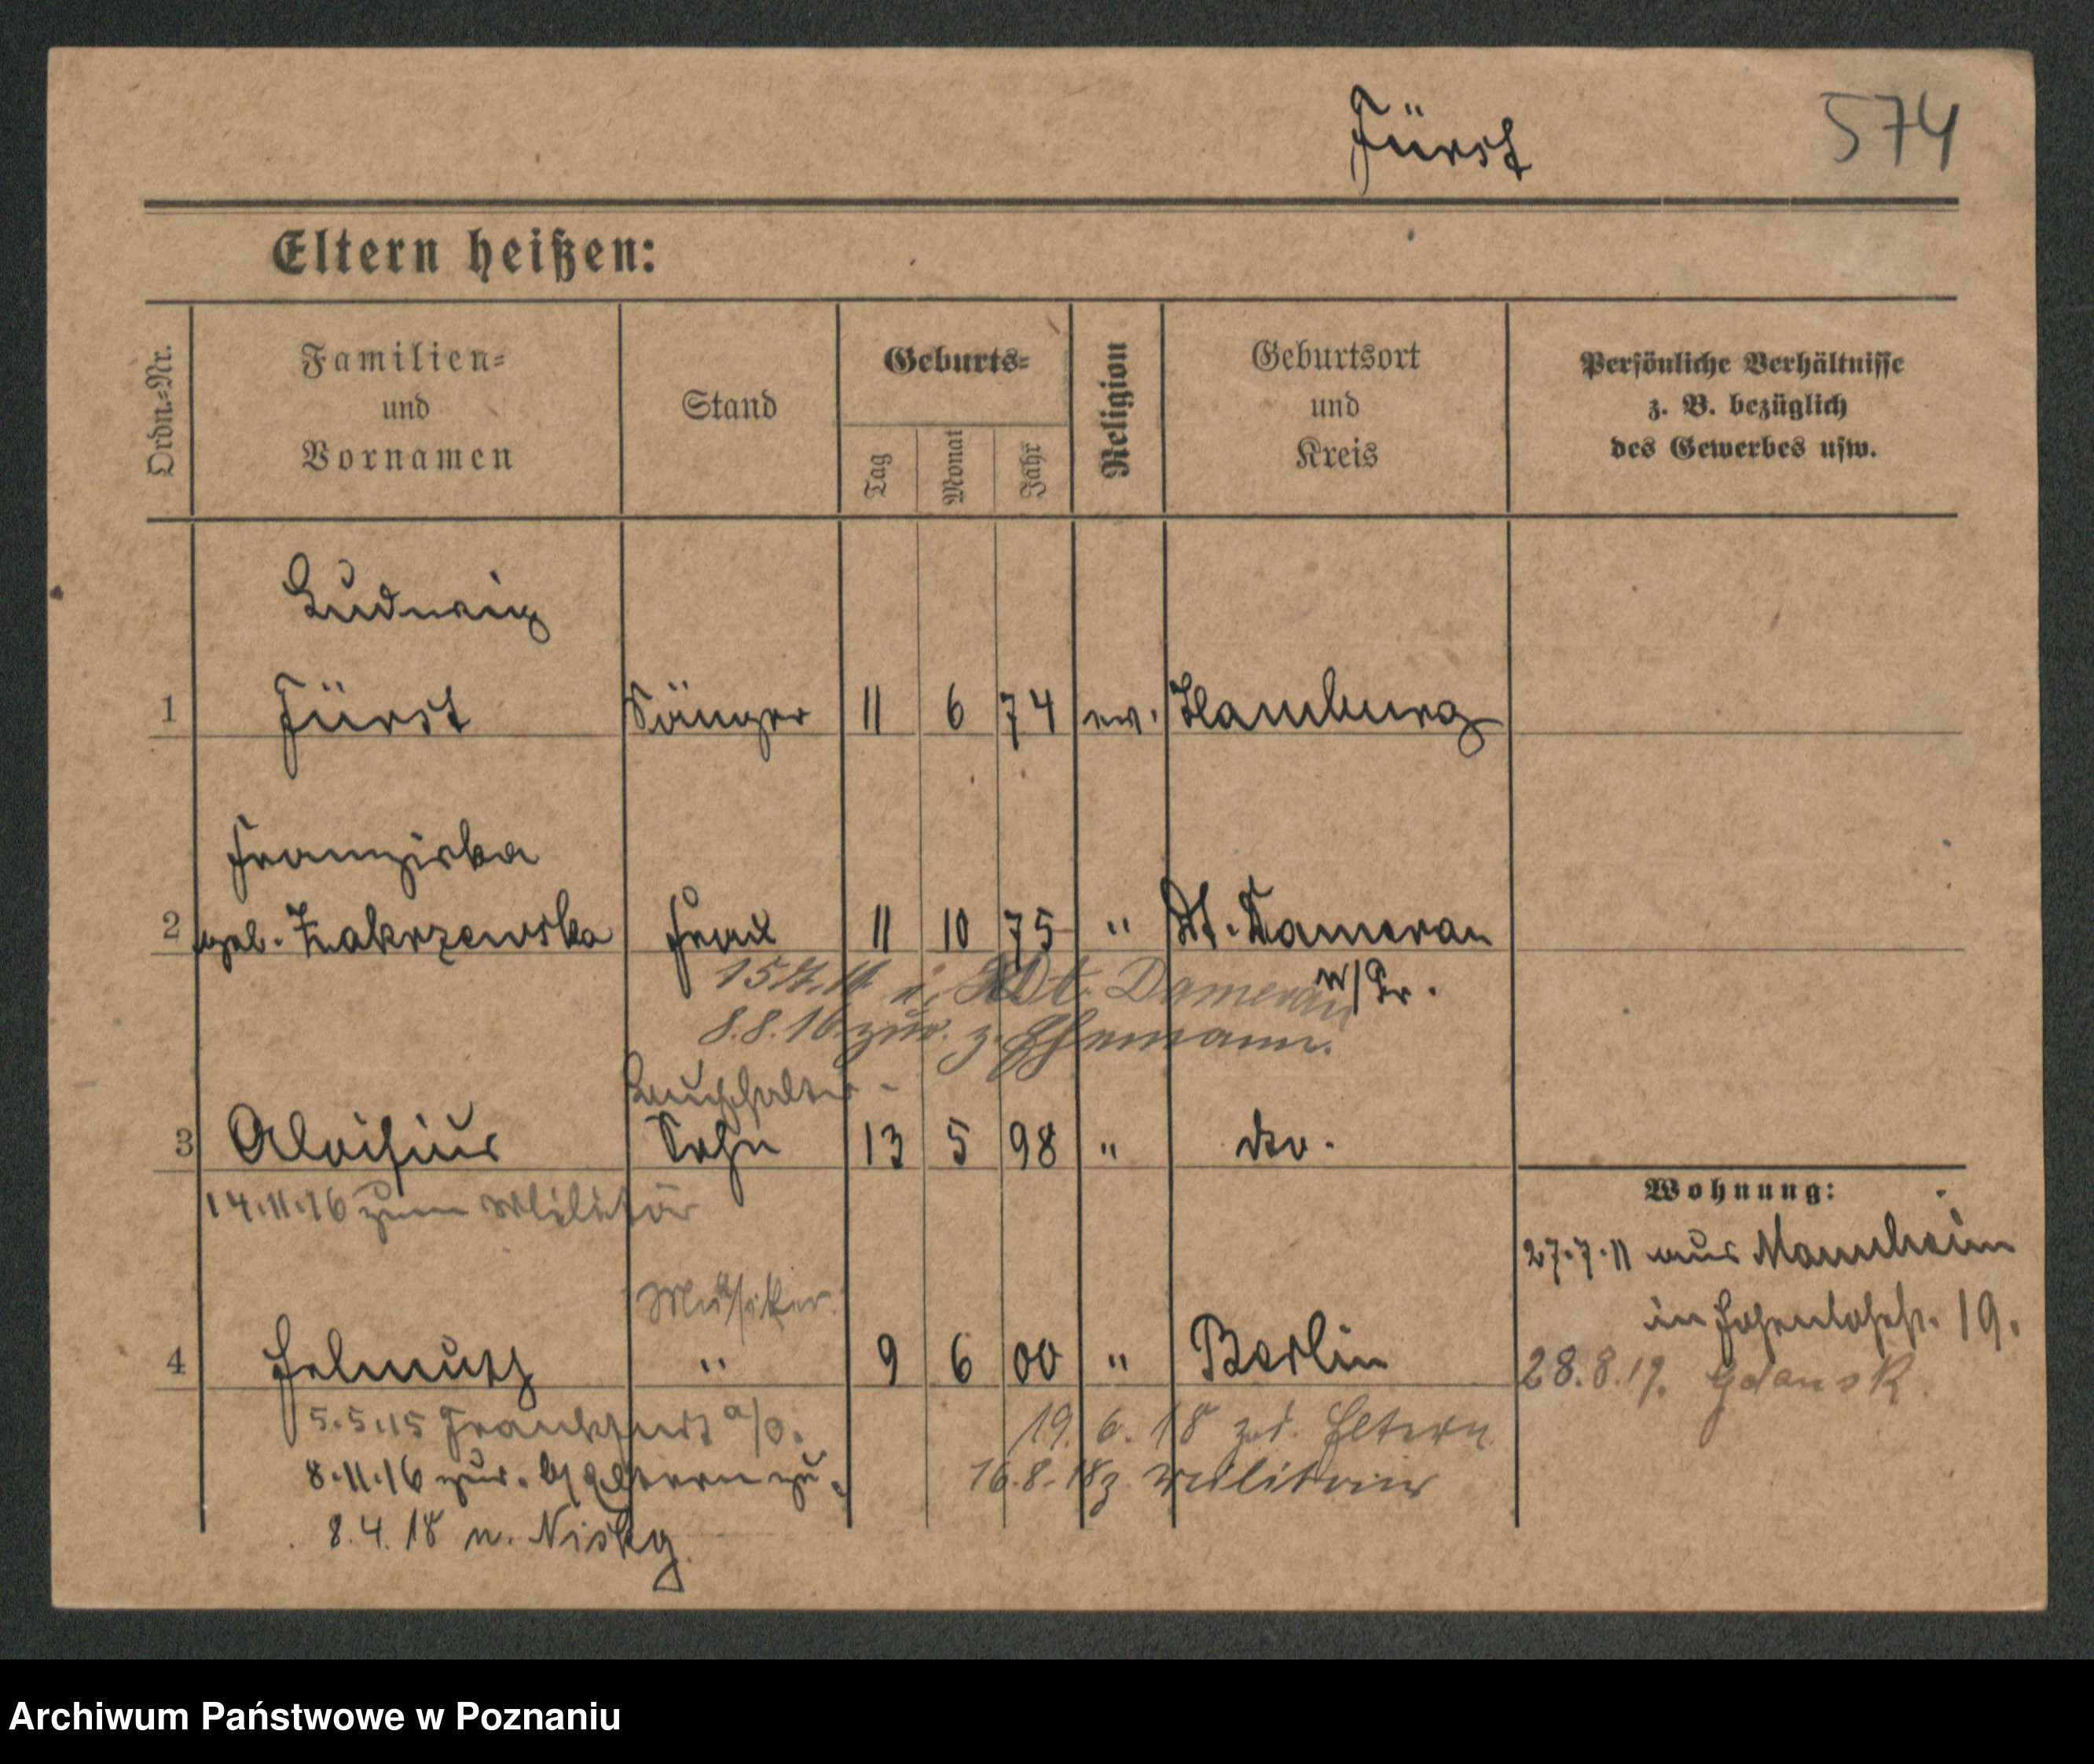 Fürst 574
Eltern heißen:
Ordn.=Nr.
Familien=
und
Vornamen
Stand
Geburts=
Tag
Monat
Jahr
Religion
Geburtsort
und
Kreis
Persönliche Verhältnisse
z. B. bezüglich
des Gewerbes usw.
Ludwig
1 Fürst Sänger 11 6 74 ev. Hamburg
Franziska
2 geb. Zakrzewska Frau 11 10 75 " Dt. Damerau
W/Pr.
Dt. Damerau
8.8.16 zur. z. Ehemann.
Buchhalter
3 Aloisius Sohn 13 5 98 " do.
14.11.16 zum Militär
Wohnung:
27.7.11 aus Mannheim
in Hohenlohestr. 19.
Musiker
4 Helmuth " 9 6 00 " Berlin
28.8.19. Gdansk.
5.5.15 Frankfurt a/O.
19.6.18 Eltern
8.11.16 zur. Eltern
16.8.18 z. Militär
8.4.18 n. Nisky.
Archiwum Państwowe w Poznaniu